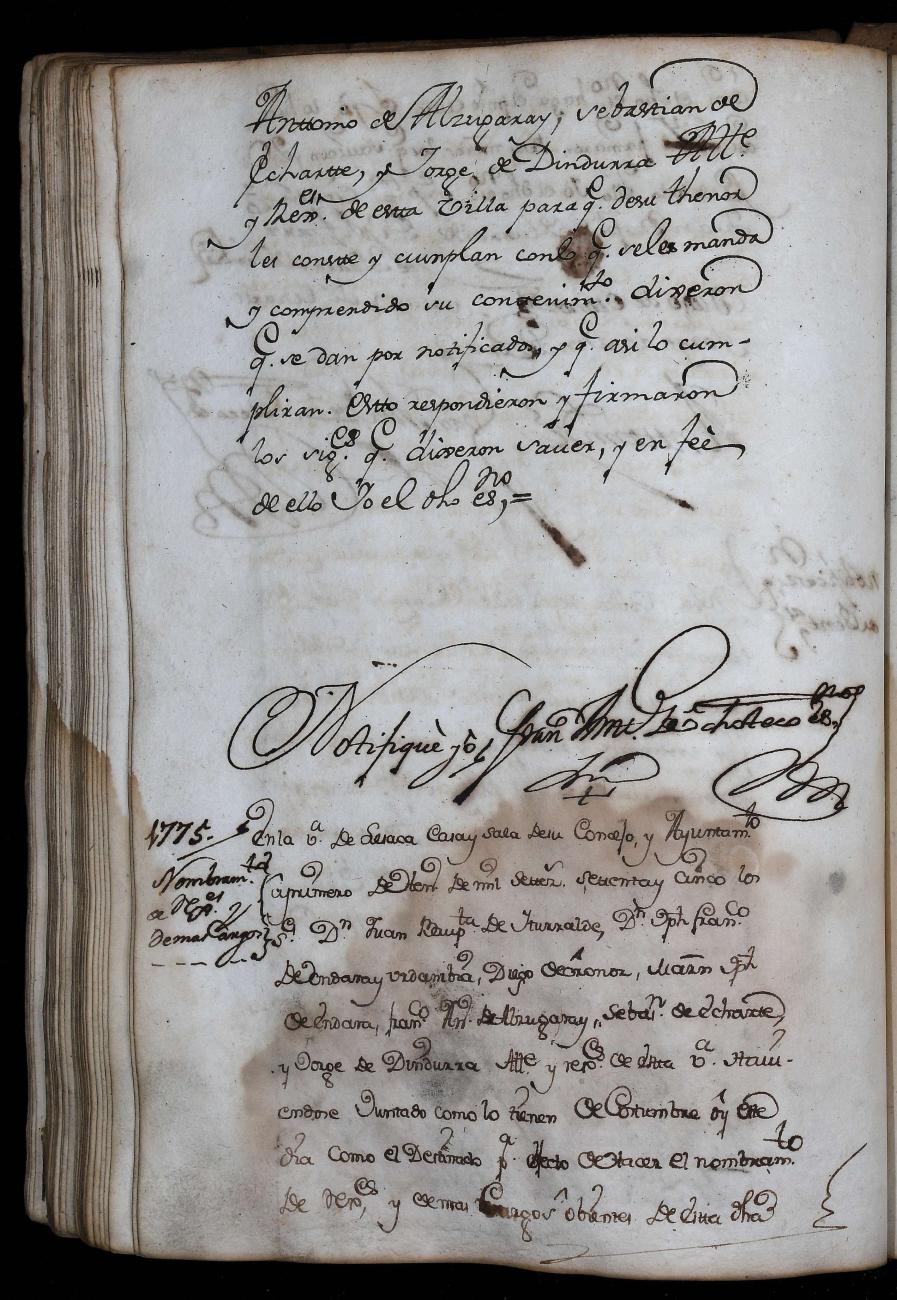 Anttonio de Alzugaray, sebasttian de
Echartte, y Jorge de Dindurra Alle.
y Rexr.es de estta Villa para q.e de su thenor
les constte y cumplan con lo q.e se les manda
y comprendido su contenim.to dixeron
q.e se dan por notificados, y q.e asi lo cum-
pliran. Estto respondieron y firmaron
los sig.es q.e dixeron saver, y en feè
de ello Yo el dho es.no =
Notifiquè yo, Fran.co Ant.o de Echoteco es.no
1775.
Nombram.to
de Rex.es y
demas cargos
En la v.a De Lesaca Casa y sala de su Concejo, y Ayuntam.to
a primero De Hen.o De mil settez. settenta y cinco los
S.es D.n Juan Baup.ta De Iturralde, D.n Jph fran.co
De endara y urdambra, Diego de Oronoz, Marn Jph
de Endara, fran.co An.to De Alzugaray, Sebas.n de Echartte,
y Jorge de Dindurra Alle y rex.es de Estta v.a Haui-
endose Juntado como lo tienen De Costumbre oy este
dia como el Destinado p.a efecto De Hacer el nombram.to
De Rex.es, y demas Cargos obtentes De Estta dha